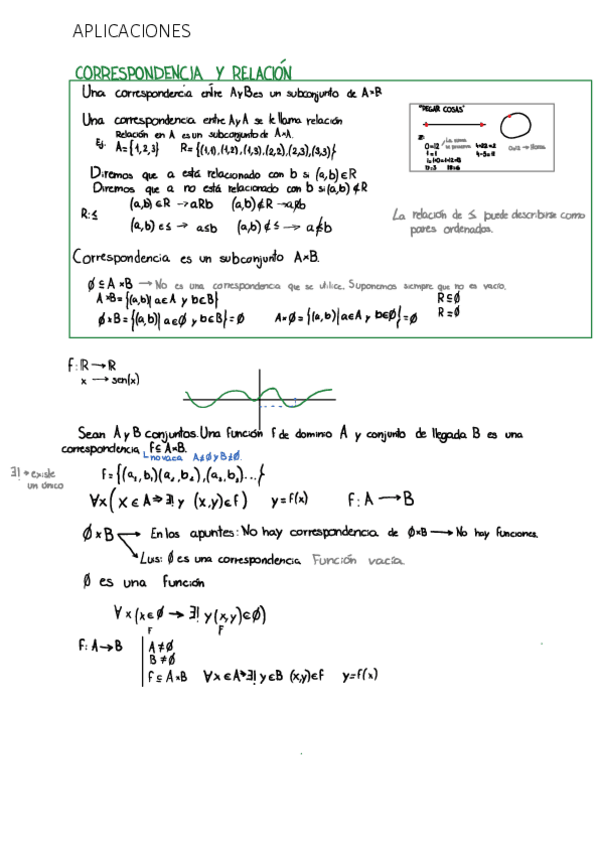 APLICACIONES
CORRESPONDENCIA Y RELACIÓN
Una correspondencia entre A y B es un subconjunto de A×B
"PEGAR COSAS"
Una correspondencia entre A y A se le llama relación
Relación en A es un subconjunto de A×A.
Ej. A={1,2,3} R={(1,1),(1,2),(1,3),(2,2),(2,3),(3,3)}
Diremos que a está relacionado con b si (a,b)∈R
Diremos que a no está relacionado con b si (a,b)∉R
(a,b)∈R → aRb (a,b)∉R → a𝑅̸b
R:≤
(a,b)∈≤ → a≤b (a,b)∉≤ → a≰b
La relación de ≤ puede describirse como
pares ordenados.
Correspondencia es un subconjunto A×B.
∅⊆A×B → No es una correspondencia que se utilice. Suponemos siempre que no es vacío.
A×B={(a,b)| a∈A y b∈B} R⊆∅
∅×B={(a,b)| a∈∅ y b∈B}=∅ A×∅={(a,b)| a∈A y b∈∅}=∅ R=∅
f:R→R
x → sen(x)
Sean A y B conjuntos. Una función f de dominio A y conjunto de llegada B es una
correspondencia f⊆A×B.
no vacía A≠∅ y B≠∅.
∃! → existe
un único
∀x(x∈A→∃! y (x,y)∈f) y=f(x) f:A→B
∅×B → En los apuntes: No hay correspondencia de ∅×B → No hay funciones.
Luis: ∅ es una correspondencia Función vacía.
∅ es una función
∀x(x∈∅ → ∃! y(x,y)∈∅)
F F
f:A→B A≠∅
B≠∅
f⊆A×B ∀x∈A→∃! y∈B (x,y)∈f y=f(x)